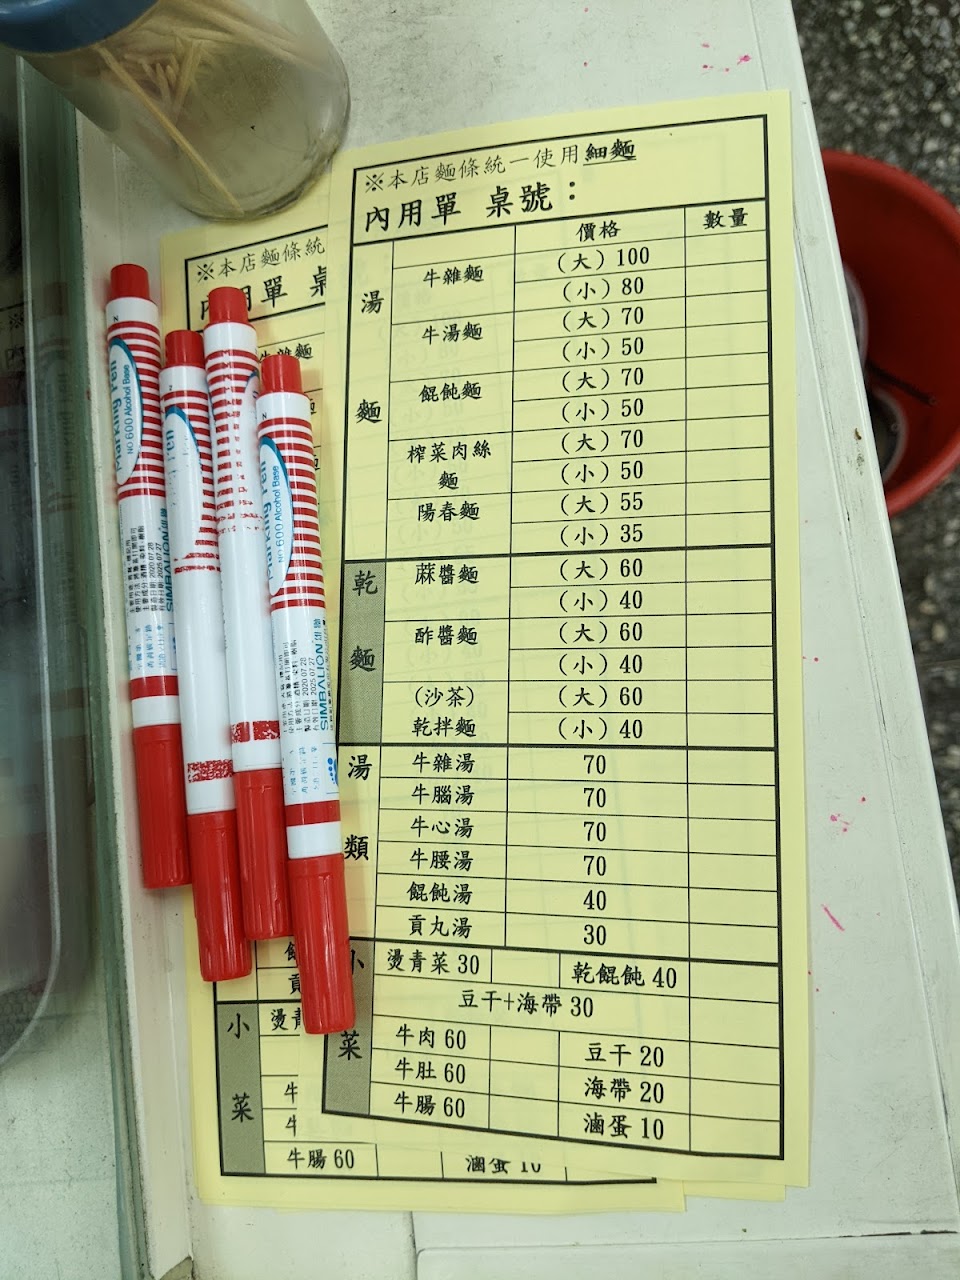 ※本店麵條統一使用細麵
內用單 桌號：
價格 數量
湯麵
牛雜麵 （大）100
（小）80
牛湯麵 （大）70
（小）50
餛飩麵 （大）70
（小）50
榨菜肉絲麵 （大）70
（小）50
陽春麵 （大）55
（小）35
乾麵
蔴醬麵 （大）60
（小）40
酢醬麵 （大）60
（小）40
（沙茶）乾拌麵 （大）60
（小）40
湯類
牛雜湯 70
牛腦湯 70
牛心湯 70
牛腰湯 70
餛飩湯 40
貢丸湯 30
小菜
燙青菜 30 乾餛飩 40
豆干+海帶 30
牛肉 60 豆干 20
牛肚 60 海帶 20
牛腸 60 滷蛋 10
※本店麵條統
內用單
牛雜麵
小菜
燙青
牛
牛
牛腸 60 滷蛋 10
Marking Pen
NO.600 Alcohol Base
SIMBALION 雄獅
製造日期:2020.07.28
有效日期:2025.07.27
Pen
SIMBALION
Marking Pen
NO.600 Alcohol Base
SIMBALION 雄獅
製造日期:2020.07.28
有效日期:2025.07.27